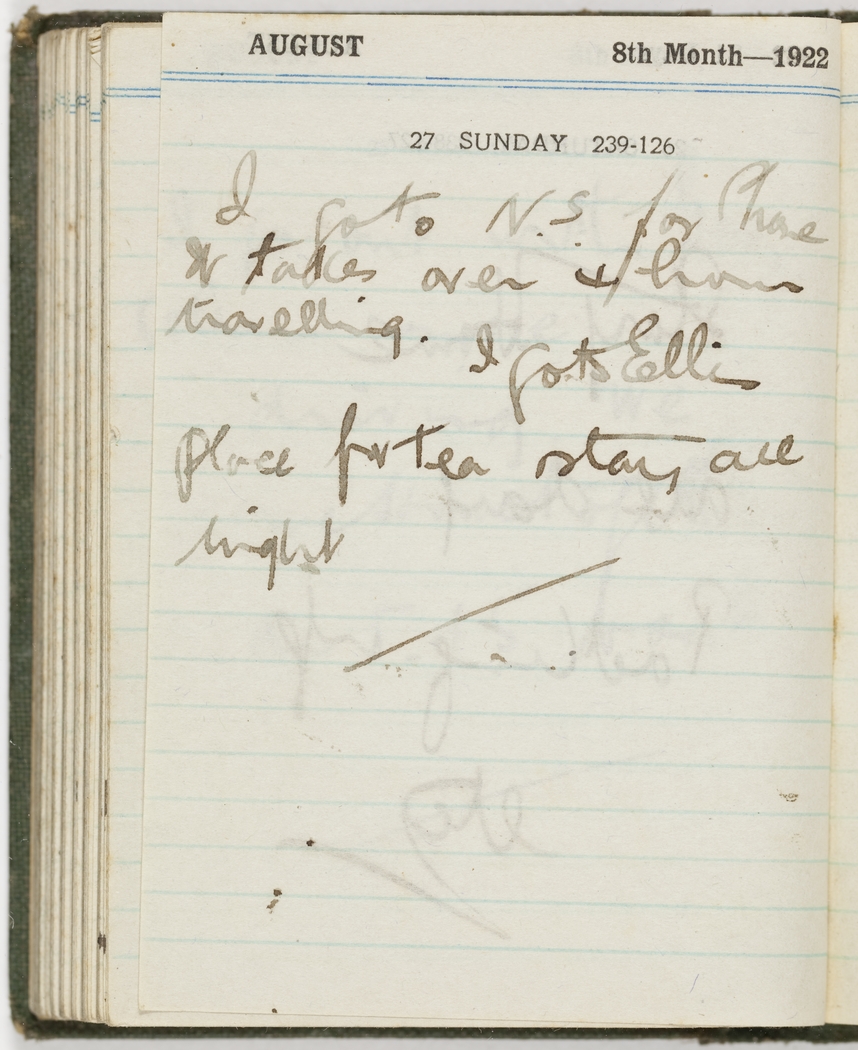 AUGUST 8th Month—1922
27 SUNDAY 239-126
I go to N.S. for
It takes over 4 hours
travelling.
I go to Ellis
place for tea stay all
night